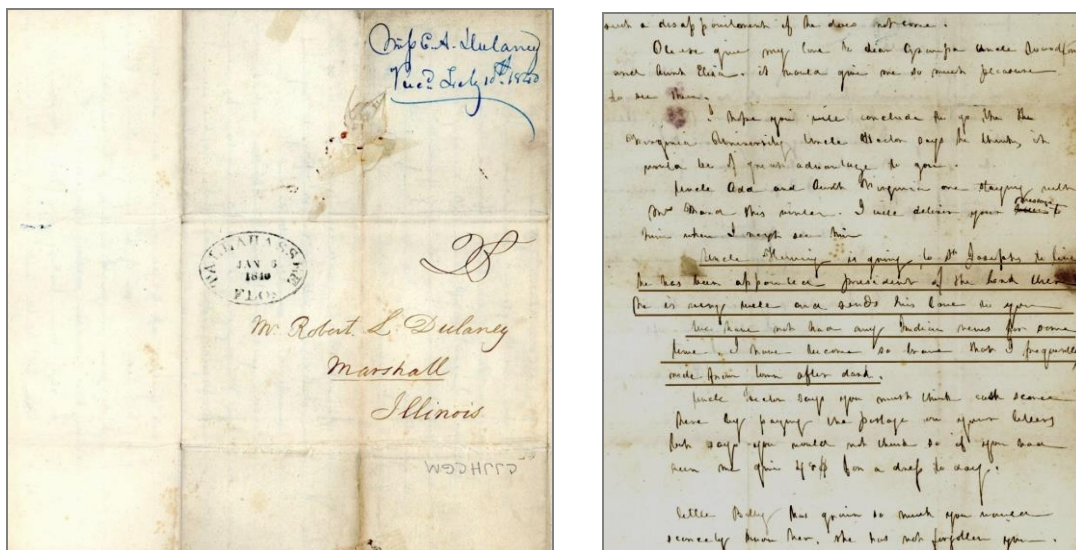 Miss E. A. Dulaney
Recd Feby 10th 1840
TALLAHASSEE
JAN 6
1840
FLOA
Mr Robert L. Dulaney
Marshall
Illinois
CJJHCGM
such a disappointment if he does not come.
Please give my love to dear Grampa Uncle
and Aunt Eliza. it would give me so much pleasure
to see them.
I hope you will conclude to go to the
Virginia University Uncle Hector says he thinks it
would be of great advantage to you.
Uncle Add and Aunt Virginia are staying with
Mr this winter. I will deliver your message to
him when I next see him
Uncle is going to St Josephs to live
he has been appointed president of the bank there
he is very well and sends his love to you
We have not had any Indian news for some
time. I have become so brave that I frequently
ride from town after dark.
Uncle Hector says you must think cash scarce
here by paying the postage on your letters
but says you would not think so if you had
seen me give 48$ for a dress to day.
little has grown so much you would
scarcely know her, she has not forgotten you.